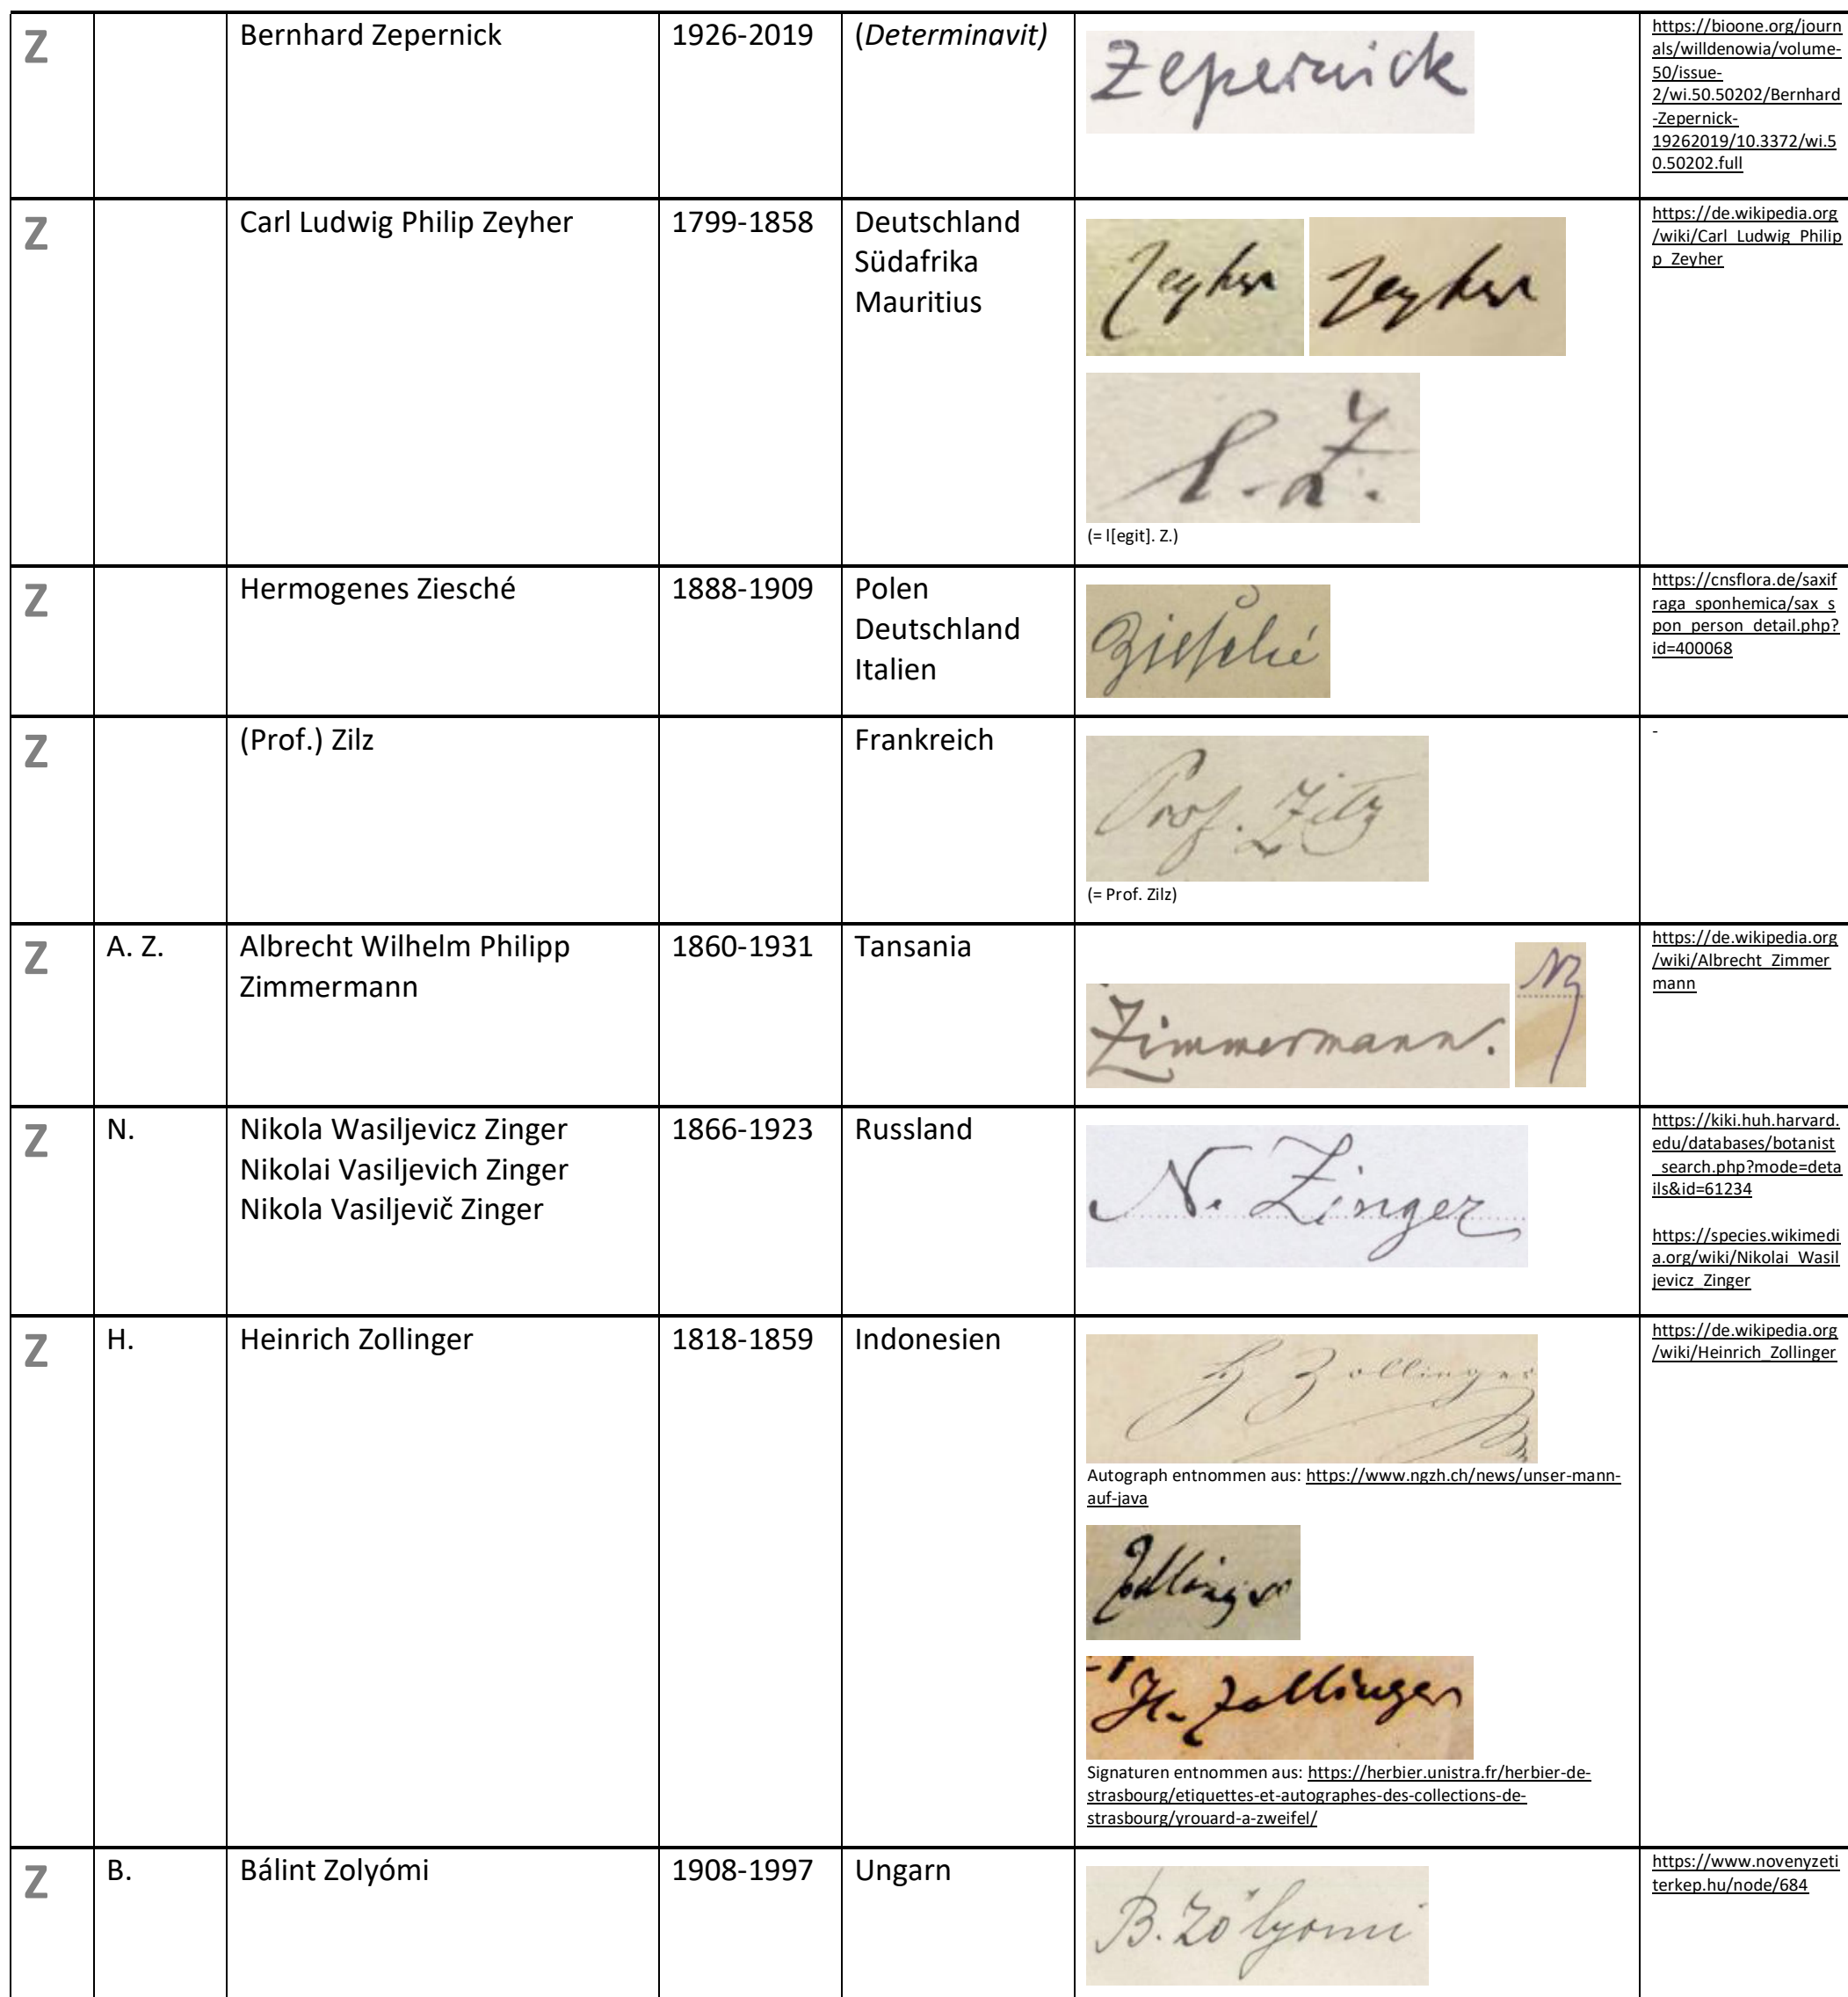 Z
Bernhard Zepernick
1926-2019
(Determinavit)
Zepernick
https://bioone.org/journ
als/willdenowia/volume-
50/issue-
2/wi.50.50202/Bernhard
-Zepernick-
19262019/10.3372/wi.5
0.50202.full
Z
Carl Ludwig Philip Zeyher
1799-1858
Deutschland
Südafrika
Mauritius
Zeyher Zeyher
l. Z.
(= l[egit]. Z.)
https://de.wikipedia.org
/wiki/Carl_Ludwig_Philip
p_Zeyher
Z
Hermogenes Ziesché
1888-1909
Polen
Deutschland
Italien
Ziesché
https://cnsflora.de/saxif
raga_sponhemica/sax_s
pon_person_detail.php?
id=400068
Z
(Prof.) Zilz
Frankreich
Prof. Zilz
(= Prof. Zilz)
-
Z
A. Z.
Albrecht Wilhelm Philipp
Zimmermann
1860-1931
Tansania
Zimmermann. AZ
https://de.wikipedia.org
/wiki/Albrecht_Zimmer
mann
Z
N.
Nikola Wasiljevicz Zinger
Nikolai Vasiljevich Zinger
Nikola Vasiljevič Zinger
1866-1923
Russland
N. Zinger
https://kiki.huh.harvard.
edu/databases/botanist
_search.php?mode=deta
ils&id=61234
https://species.wikimedi
a.org/wiki/Nikolai_Wasil
jevicz_Zinger
Z
H.
Heinrich Zollinger
1818-1859
Indonesien
H Zollinger
Autograph entnommen aus: https://www.ngzh.ch/news/unser-mann-
auf-java
Zollinger
H. Zollinger
Signaturen entnommen aus: https://herbier.unistra.fr/herbier-de-
strasbourg/etiquettes-et-autographes-des-collections-de-
strasbourg/yrouard-a-zweifel/
https://de.wikipedia.org
/wiki/Heinrich_Zollinger
Z
B.
Bálint Zolyómi
1908-1997
Ungarn
B. Zólyomi
https://www.novenyzeti
terkep.hu/node/684